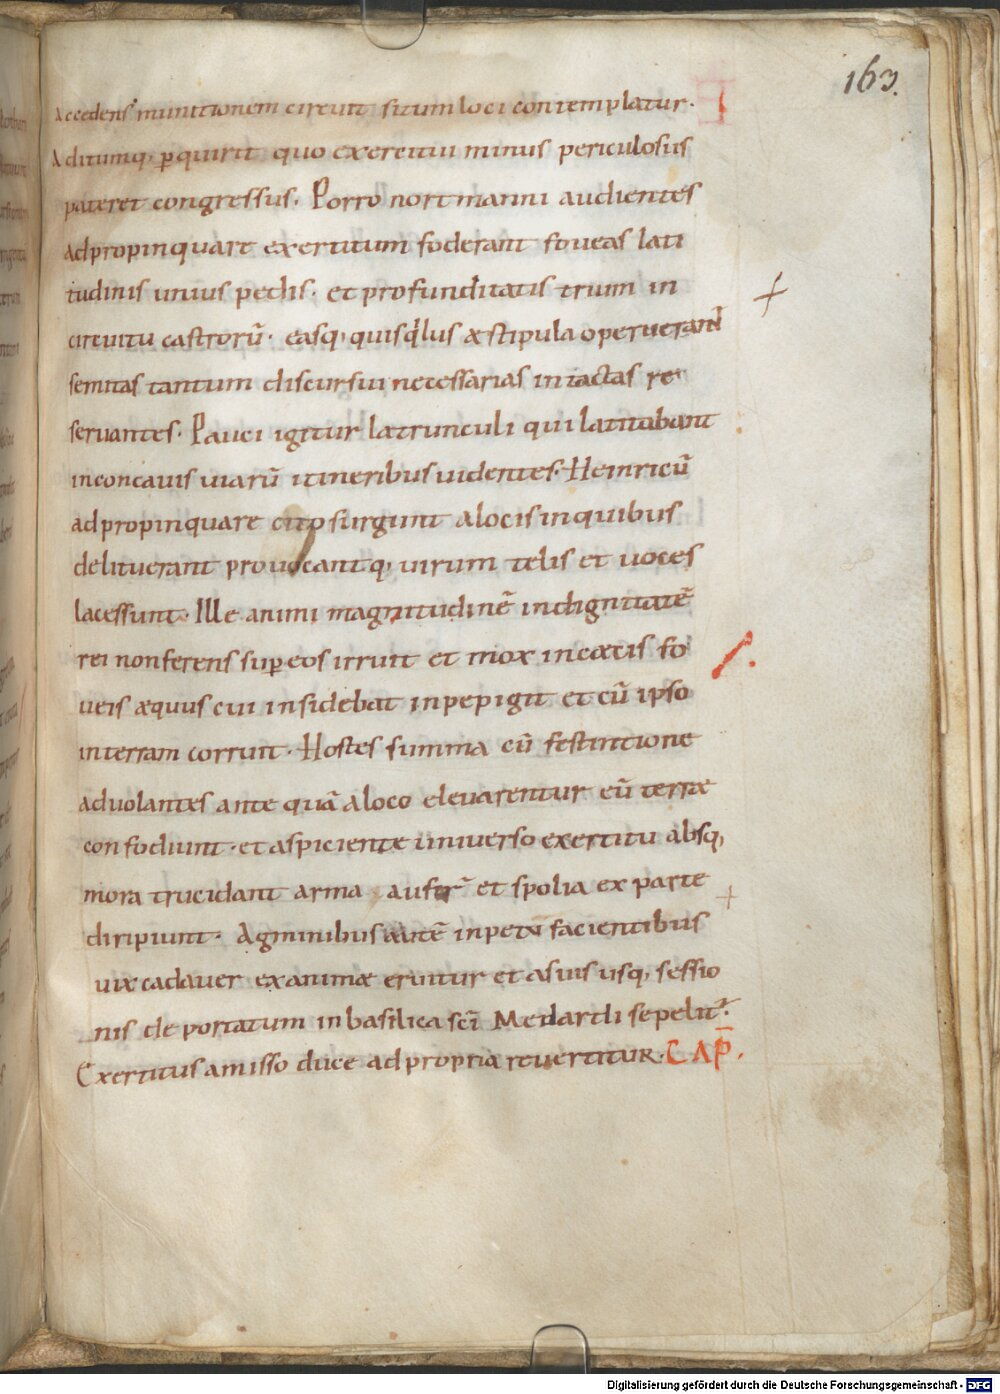 163.
Accedens munitionem circuit situm loci contemplatur.
Aditumq; ꝑquirit quo exercitui minus periculosus
pateret congressus. Porro nortmanni audientes
adpropinquare exertitum foderant foveas lati
tudinis unius pedis. et profunditatis trium in
circuitu castrorū. easq; quisq̇lus & stipula operuerant
semitas tantum discursui necessarias intactas re
servantes. Pauci igitur latrunculi qui latitabant
in concavis viarū itineribus videntes. Heinricū
adpropinquare cito surgunt a locis in quibus
delituerant provocantq; virum telis et voces
lacessunt. Ille animi magnitudinē indignitatē
rei non ferens suꝑ eos irruit et mox in cœcis fo
veis æquus cui insidebat inpepigit et cū ipso
in terram corruit. Hostes summa cū festintione
advolantes ante quā a loco elevarentur eū terræ
confodiunt. et aspiciente universo exertitu absq;
mora trucidant arma auferr̄ et spolia ex parte
diripiunt. Agminibus autē inpetū facientibus
vix cadaver exanimæ eruitur et a suis usq; sessio
nis de portatum in basilica sc̄i Medardi sepelit᷑.
Exertitus amisso duce ad propria revertitur. CAP̄.
Digitalisierung gefördert durch die Deutsche Forschungsgemeinschaft - DFG